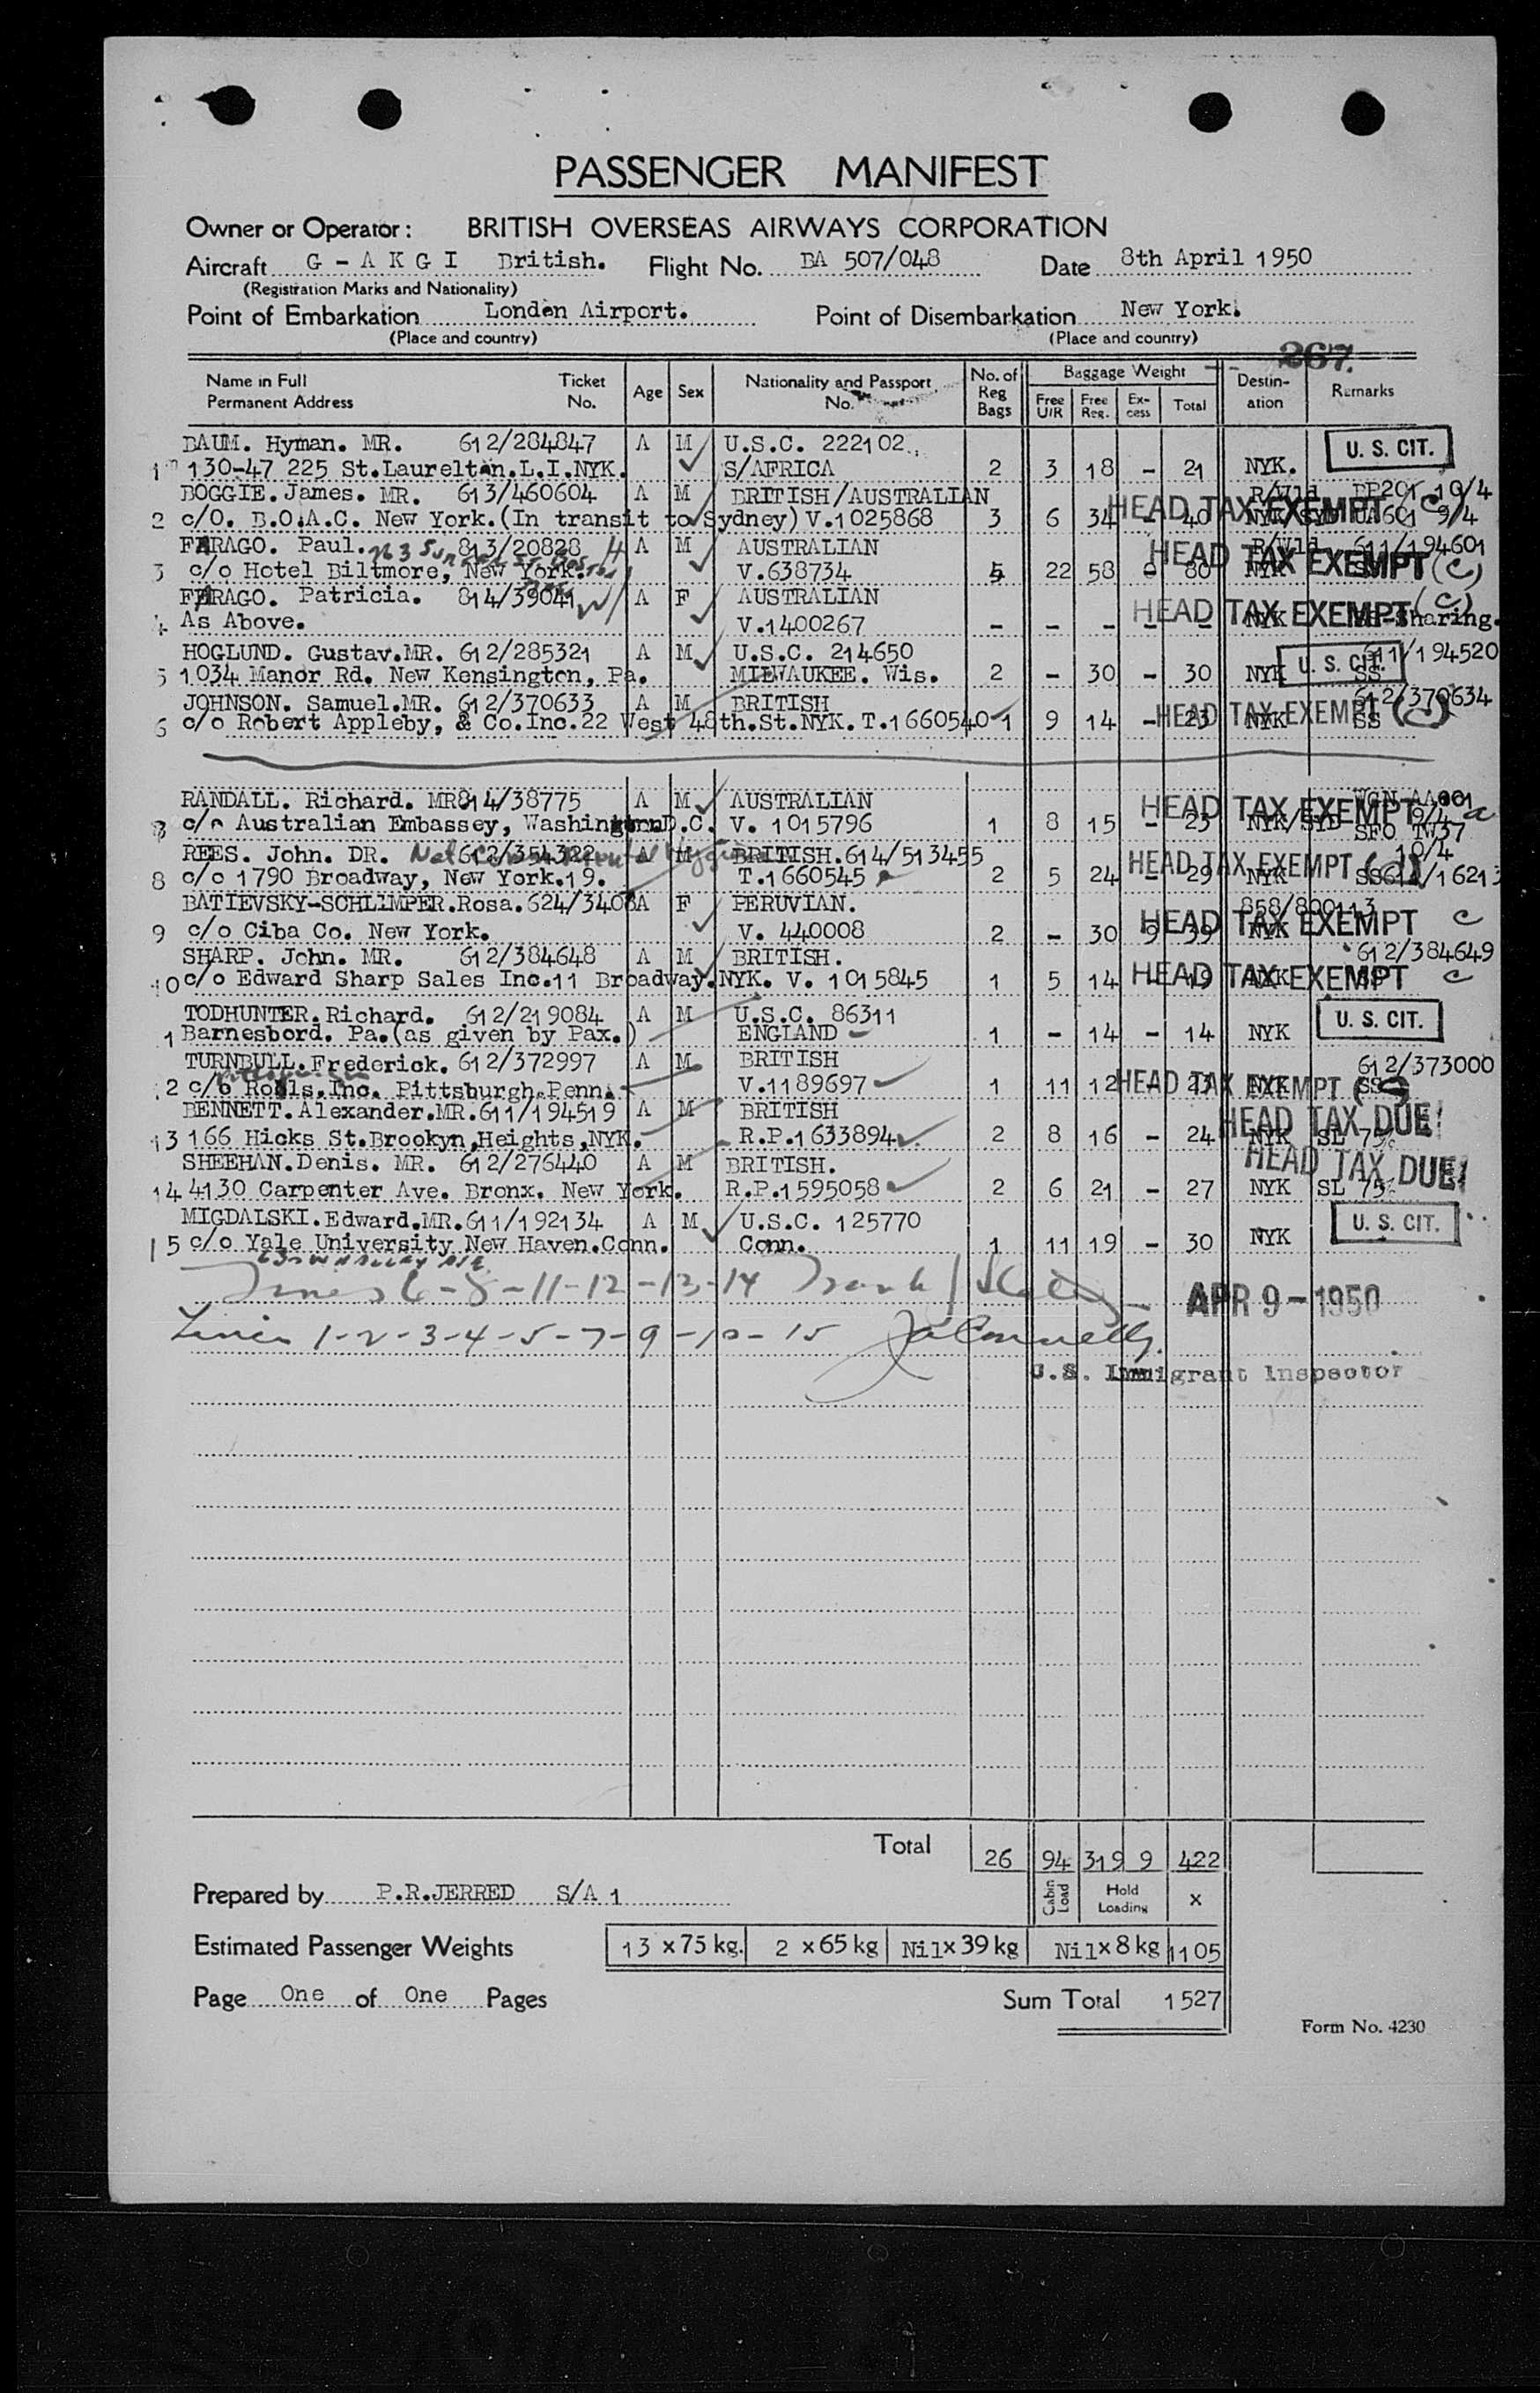 PASSENGER MANIFEST
Owner or Operator: BRITISH OVERSEAS AIRWAYS CORPORATION
Aircraft G - A K G I British. Flight No. BA 507/048 Date 8th April 1950
(Registration Marks and Nationality)
Point of Embarkation London Airport. Point of Disembarkation New York.
(Place and country) (Place and country)
267.
Name in Full Permanent Address Ticket No. Age Sex Nationality and Passport No. No. of Reg Bags Baggage Weight Free U/R Free Reg. Ex-cess Total Destin-ation Remarks
BAUM. Hyman. MR. 612/284847 A M U.S.C. 222102. U. S. CIT.
1 130-47 225 St.Laurelton.L.I.NYK. S/AFRICA 2 3 18 - 21 NYK.
BOGGIE. James. MR. 613/460604 A M BRITISH/AUSTRALIAN R/Wld 10/4
2 c/O. B.O.A.C. New York.(In transit to Sydney) V.1025868 3 6 34 - 40 NYK/SYD UA601 9/4 HEAD TAX EXEMPT (C)
FARAGO. Paul. 813/20828 A M AUSTRALIAN R/Wld 611/194601
3 c/o Hotel Biltmore, New York. V.638734 5 22 58 - 80 NYK HEAD TAX EXEMPT (C)
FARAGO. Patricia. 814/39041 A F AUSTRALIAN HEAD TAX EXEMPT (C)
4 As Above. V.1400267 - - - - - NYK Sharing.
HOGLUND. Gustav.MR. 612/285321 A M U.S.C. 214650 611/194520
5 1034 Manor Rd. New Kensington, Pa. MILWAUKEE. Wis. 2 - 30 - 30 NYK U. S. CIT. SS
JOHNSON. Samuel.MR. 612/370633 A M BRITISH 612/370634
6 c/o Robert Appleby, & Co.Inc.22 West 48th.St.NYK. T.1660540 1 9 14 - 23 NYK SS HEAD TAX EXEMPT (C)
RANDALL. Richard. MR 814/38775 A M AUSTRALIAN HEAD TAX EXEMPT a
7 c/o Australian Embassey, Washington.D.C. V. 1015796 1 8 15 - 23 NYK/SYD 9/4 SFO TW37
REES. John. DR. 612/354322 A M BRITISH. 614/513455 10/4
8 c/o 1790 Broadway, New York.19. T.1660545 2 5 24 - 29 NYK SS HEAD TAX EXEMPT (C)
BATIEVSKY-SCHLIMPER.Rosa. 624/3408 A F PERUVIAN. 858/800113
9 c/o Ciba Co. New York. V. 440008 2 - 30 9 39 NYK HEAD TAX EXEMPT C
SHARP. John. MR. 612/384648 A M BRITISH. 612/384649
10 c/o Edward Sharp Sales Inc.11 Broadway.NYK. V. 1015845 1 5 14 - 19 NYK HEAD TAX EXEMPT C
TODHUNTER. Richard. 612/219084 A M U.S.C. 86311 U. S. CIT.
1 Barnesbord. Pa.(as given by Pax.) ENGLAND 1 - 14 - 14 NYK
TURNBULL. Frederick. 612/372997 A M BRITISH 612/373000
2 c/o Rolls.Inc. Pittsburgh.Penn. V.1189697 1 11 12 - 23 NYK SS HEAD TAX EXEMPT (C)
BENNETT. Alexander.MR. 611/194519 A M BRITISH HEAD TAX DUE!
13 166 Hicks St.Brookyn,Heights,NYK. R.P.1633894 2 8 16 - 24 NYK SL 75
SHEEHAN. Denis. MR. 612/276440 A M BRITISH. HEAD TAX DUE!
14 4130 Carpenter Ave. Bronx. New York. R.P.1595058 2 6 21 - 27 NYK SL 75
MIGDALSKI. Edward.MR. 611/192134 A M U.S.C. 125770 U. S. CIT.
15 c/o Yale University New Haven.Conn. Conn. 1 11 19 - 30 NYK
Lines 6 - 8 - 11 - 12 - 13 - 14 APR 9 - 1950
Lines 1 - 2 - 3 - 4 - 5 - 7 - 9 - 10 - 15
U.S. Immigrant Inspector
Total 26 94 319 9 422
Prepared by P.R.JERRED S/A 1 Cabin Load Hold Loading x
Estimated Passenger Weights 13 x 75 kg. 2 x 65 kg Nil x 39 kg Nil x 8 kg 1105
Page One of One Pages Sum Total 1527
Form No. 4230